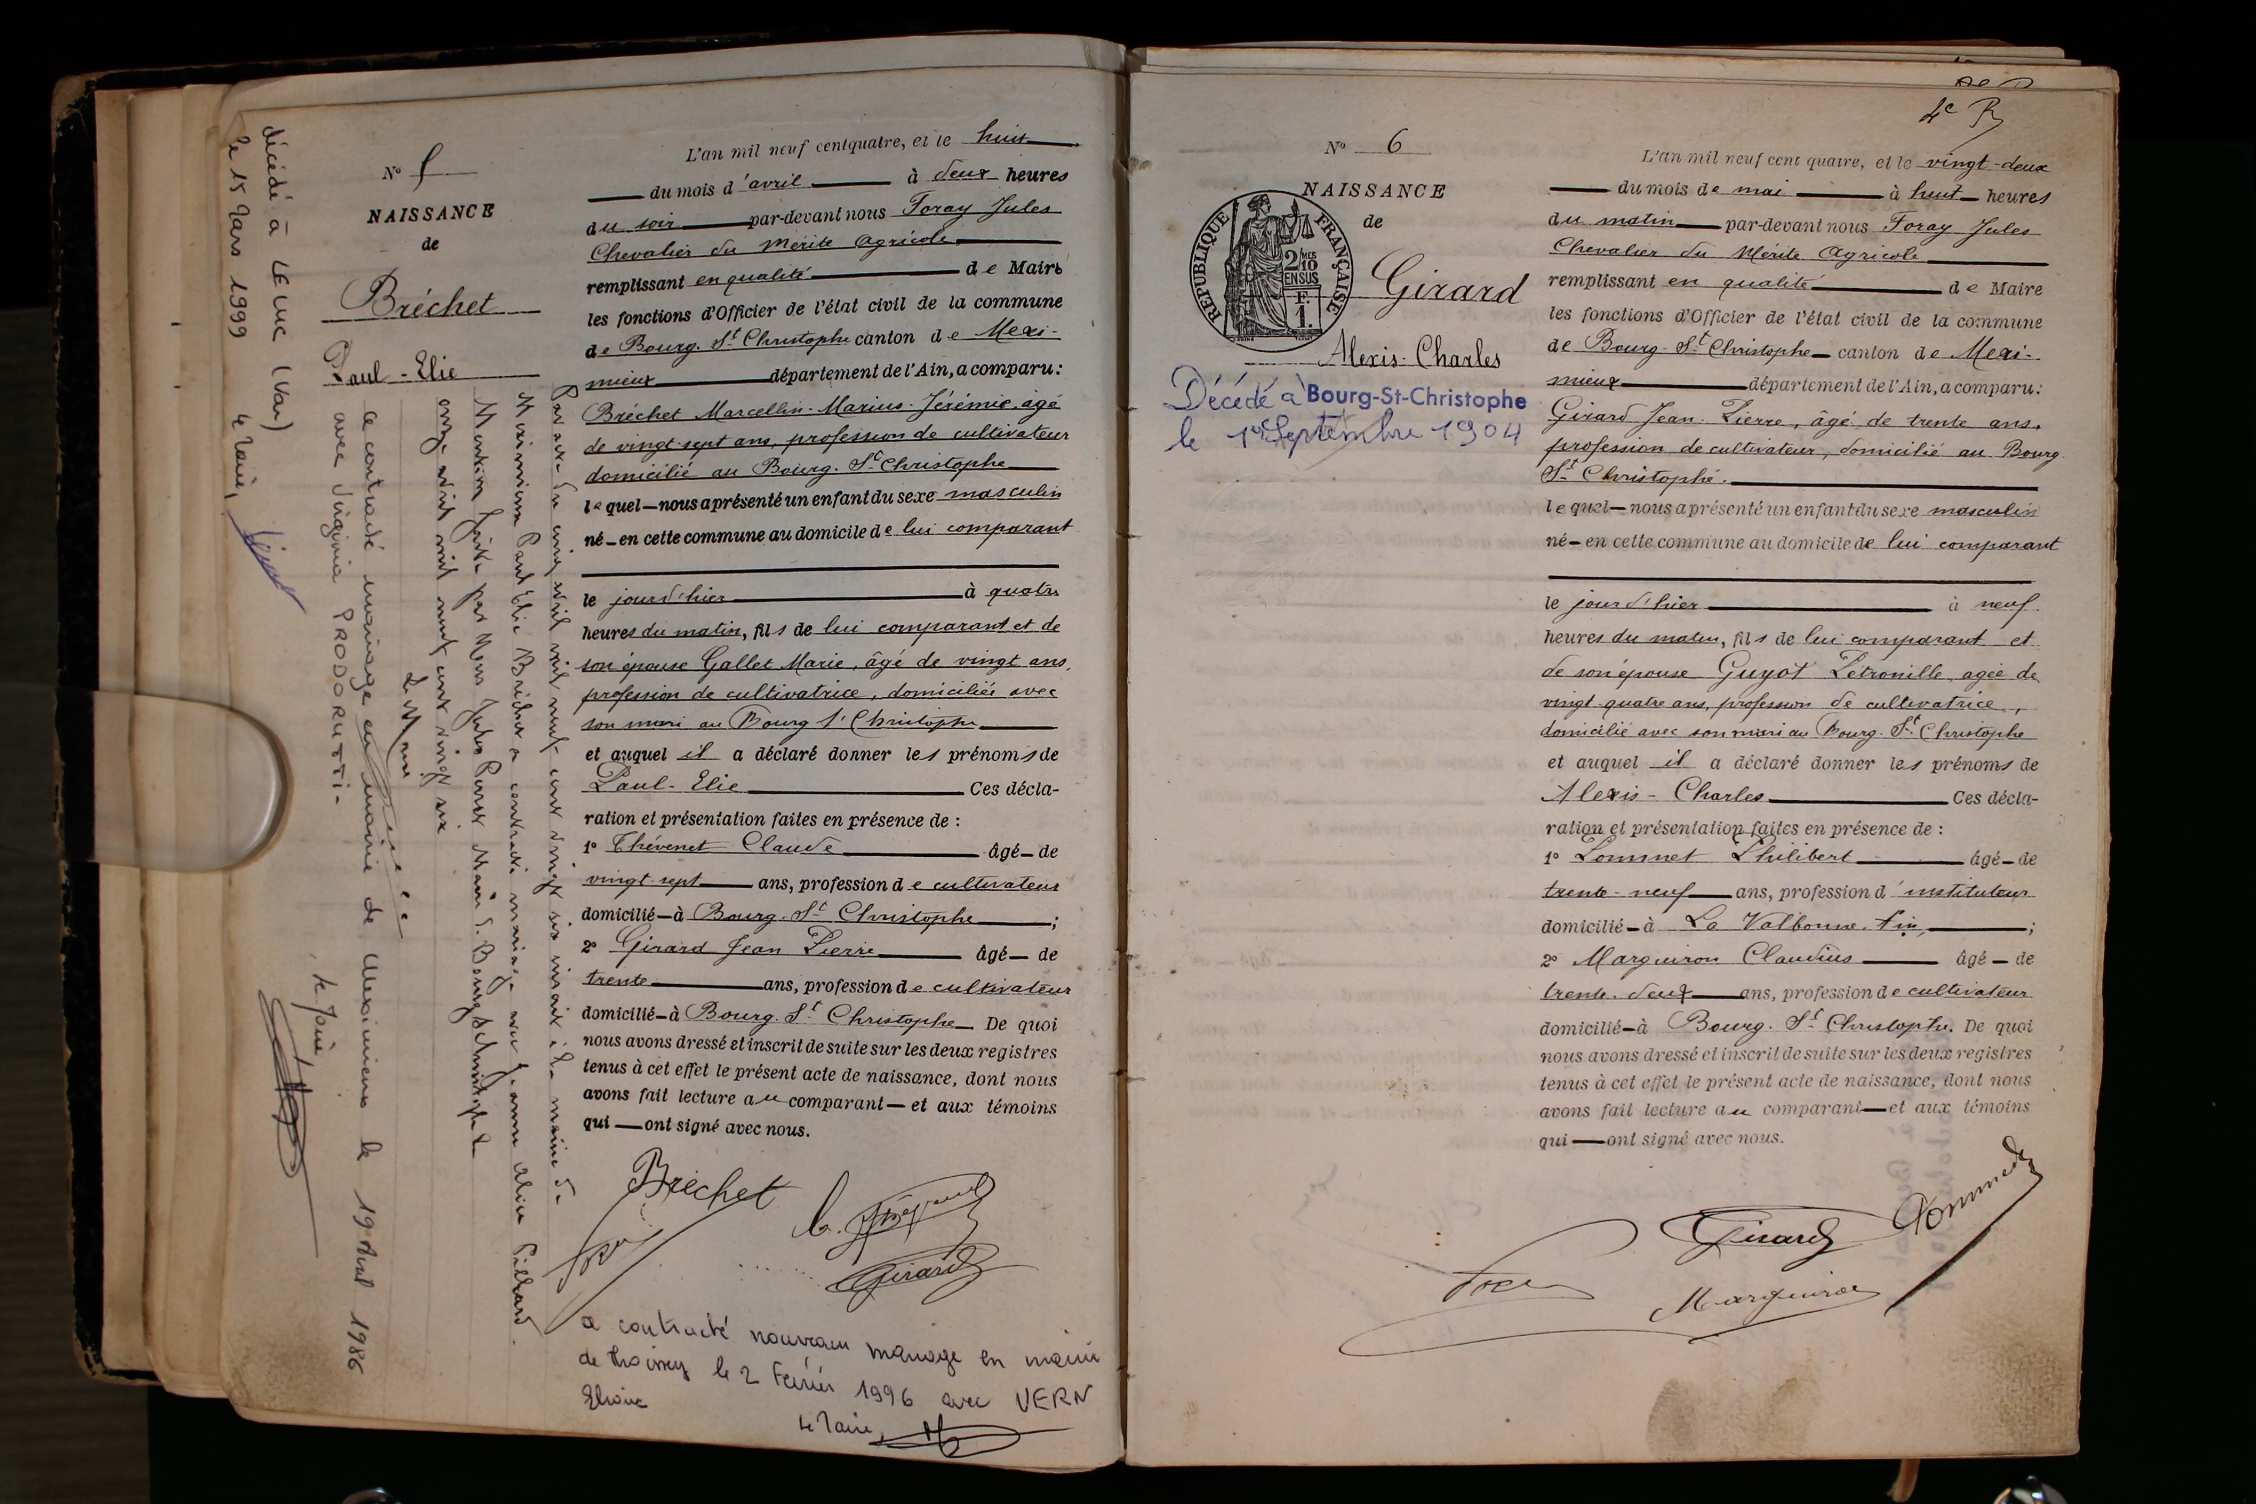 décédé à LE LUC (Var)
le 15 Mars 1999 le Maire,
N° 5
NAISSANCE
de
Bréchet
Paul-Elie
Par acte du onze avril mil neuf cent vingt six inscrit à la mairie de
Meximieux Paul Elie Bréchet a contracté mariage avec Jeanne Alice
Mention faite par Nous Jules Maire d. Bourg St Christophe
onze avril mil neuf cent vingt six
Le Maire
a contracté mariage en mairie de Meximieux le 19 Avril 1986
avec Virginia PRODORUTTI-
le Maire
L'an mil neuf cent quatre, et le huit
du mois d'avril à deux heures
du soir par-devant nous Foray Jules
Chevalier du Mérite Agricole
remplissant en qualité de Maire
les fonctions d'Officier de l'état civil de la commune
de Bourg-St-Christophe canton de Mexi-
mieux département de l'Ain, a comparu:
Bréchet Marcellin-Marius-Jérémie, âgé
de vingt-sept ans, profession de cultivateur
domicilié au Bourg-St-Christophe
lequel nous a présenté un enfant du sexe masculin
né en cette commune au domicile de lui comparant
le jour d'hier à quatre
heures du matin, fils de lui comparant et de
son épouse Gallet Marie, âgé de vingt ans,
profession de cultivatrice, domiciliée avec
son mari au Bourg St Christophe
et auquel il a déclaré donner les prénoms de
Paul-Elie Ces décla-
ration et présentation faites en présence de :
1° Thévenet Claude âgé de
vingt-sept ans, profession de cultivateur
domicilié à Bourg-St-Christophe ;
2° Girard Jean Pierre âgé de
trente ans, profession de cultivateur
domicilié à Bourg-St-Christophe De quoi
nous avons dressé et inscrit de suite sur les deux registres
tenus à cet effet le présent acte de naissance, dont nous
avons fait lecture au comparant et aux témoins
qui ont signé avec nous.
Bréchet
Girard
a contracté nouveau mariage en mairie
de Thoissey le 2 Février 1996 avec VERN
le Maire,
4e R
N° 6
NAISSANCE
de
REPUBLIQUE FRANÇAISE
2/10
EN SUS
F.
1.
Girard
Alexis-Charles
Décédé à Bourg-St-Christophe
le 1er Septembre 1904
L'an mil neuf cent quatre, et le vingt-deux
du mois de mai à huit heures
du matin par-devant nous Foray Jules
Chevalier du Mérite Agricole
remplissant en qualité de Maire
les fonctions d'Officier de l'état civil de la commune
de Bourg-St-Christophe canton de Mexi-
mieux département de l'Ain, a comparu:
Girard Jean-Pierre, âgé de trente ans,
profession de cultivateur, domicilié au Bourg
St Christophe.
lequel nous a présenté un enfant du sexe masculin
né en cette commune au domicile de lui comparant
le jour d'hier à neuf
heures du matin, fils de lui comparant et
de son épouse Guyot Pétronille, agée de
vingt-quatre ans, profession de cultivatrice,
domicilié avec son mari au Bourg-St-Christophe
et auquel il a déclaré donner les prénoms de
Alexis-Charles Ces décla-
ration et présentation faites en présence de :
1° Pommet Philibert âgé de
trente-neuf ans, profession d'instituteur
domicilié à La Valbonne, Ain, ;
2° Marguiron Claudius âgé de
trente-deux ans, profession de cultivateur
domicilié à Bourg-St-Christophe. De quoi
nous avons dressé et inscrit de suite sur les deux registres
tenus à cet effet le présent acte de naissance, dont nous
avons fait lecture au comparant et aux témoins
qui ont signé avec nous.
Pommet
Girard
Marguiron